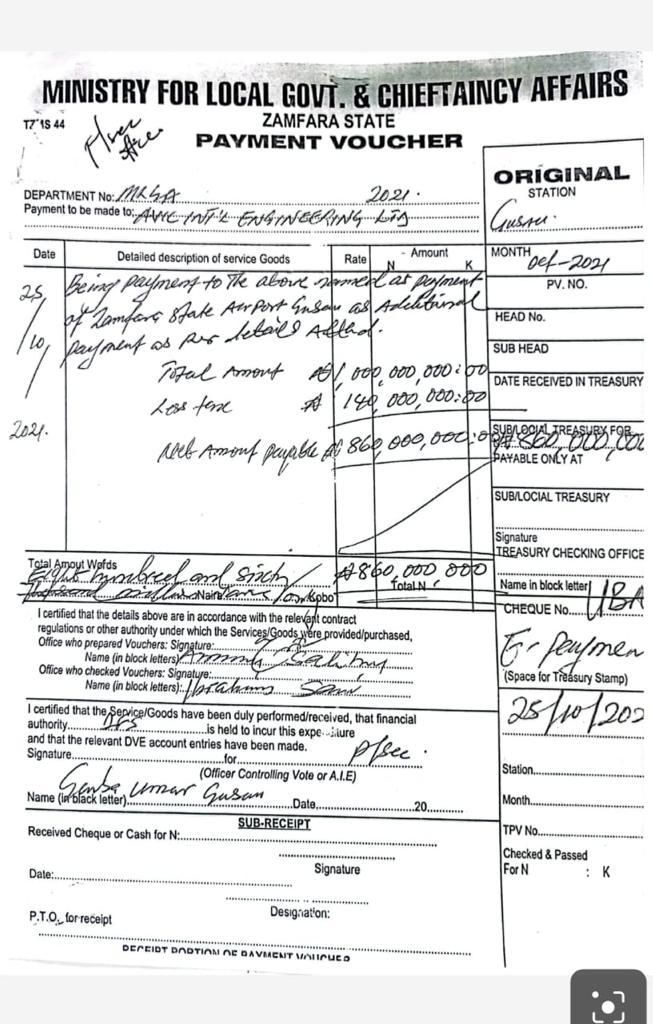 MINISTRY FOR LOCAL GOVT. & CHIEFTAINCY AFFAIRS
ZAMFARA STATE
PAYMENT VOUCHER
ORIGINAL
STATION
Gusau
DEPARTMENT No: MLGA 2021.
Payment to be made to: AWC INT'L ENGINEERING LTD
Date Detailed description of service Goods Rate Amount
N K
25/10/2021.
Being payment to the above named as payment
of Zamfara State Airport Gusau as Additional
payment as per details Attchd.
Total Amount ₦1,000,000,000:00
Less 140,000,000:00
Nett Amount payable ₦860,000,000:00
MONTH Oct-2021
PV. NO.
HEAD No.
SUB HEAD
DATE RECEIVED IN TREASURY
SUB/LOCIAL TREASURY FOR
₦860,000,000
PAYABLE ONLY AT
SUB/LOCAL TREASURY
Signature
TREASURY CHECKING OFFICE
Name in block letter
CHEQUE No. UBA
E-paymen
(Space for Treasury Stamp)
25/10/202
Station
Month
TPV No.
Checked & Passed
For N : K
Total Amout Words ₦860,000,000
Eight hundred and sixty Total N
Naira Kobo
I certified that the details above are in accordance with the relevant contract
regulations or other authority under which the Services/Goods were provided/purchased,
Office who prepared Vouchers: Signature:
Name (in block letters)
Office who checked Vouchers: Signature:
Name (in block letters): Ibrahim Sani
I certified that the Service/Goods have been duly performed/received, that financial
authority is held to incur this
and that the relevant DVE account entries have been made.
Signature for P/sec.
(Officer Controlling Vote or A.I.E)
Name (in black letter) Garba Umar Gusau Date, 20
SUB-RECEIPT
Received Cheque or Cash for N:
Signature
Date:
Designation:
P.T.O. for receipt
RECEIPT PORTION OF PAYMENT VOUCHER